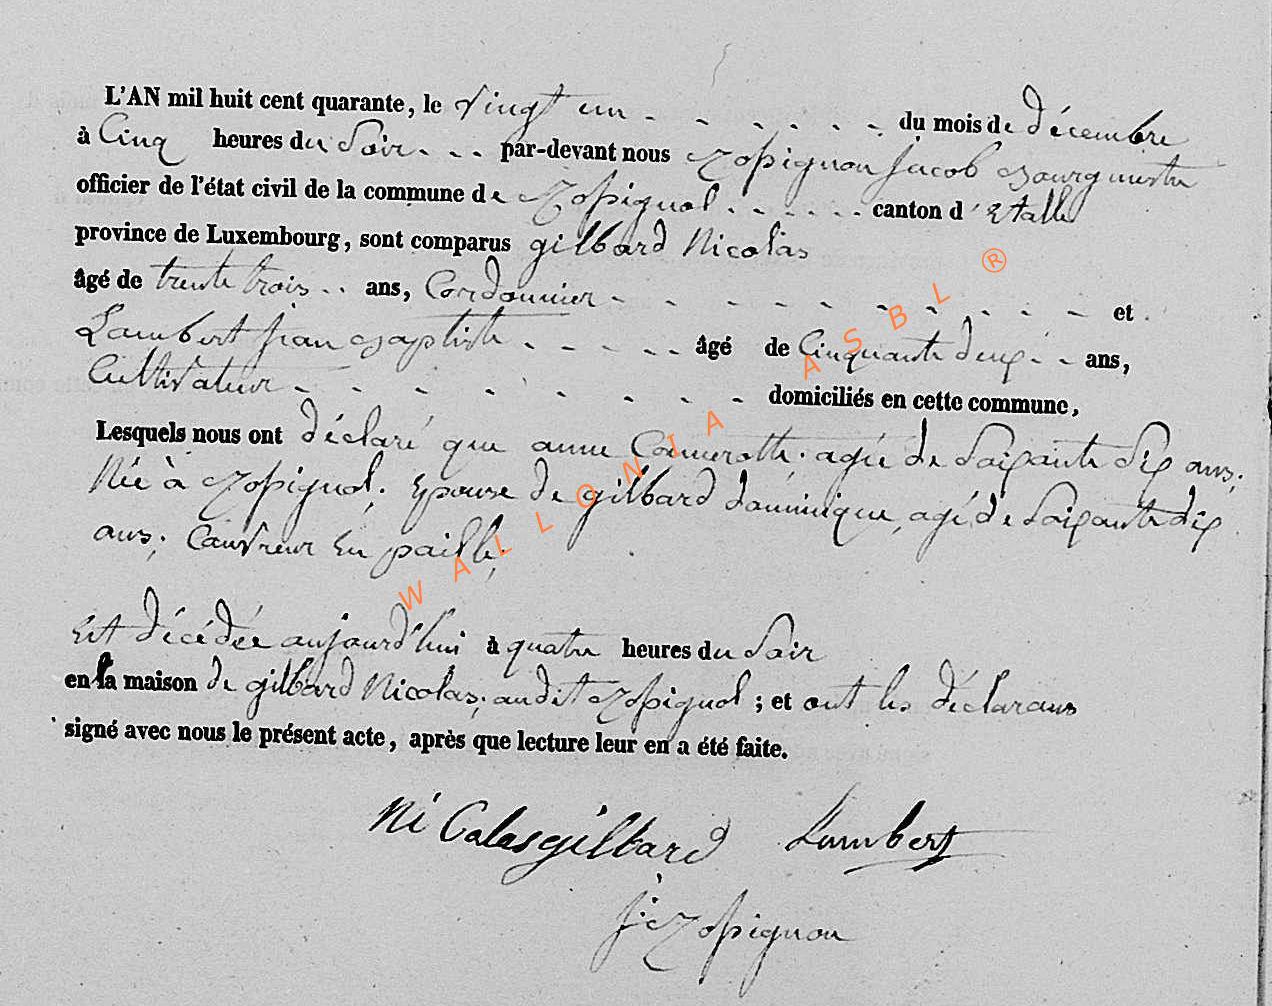 L'AN mil huit cent quarante, le vingt un - - - - - - du mois de décembre
à Cinq heures du Soir - - - par-devant nous Rossignon Jacob Bourgmestre
officier de l'état civil de la commune de Rossignol - - - - - - canton d'Etalle
province de Luxembourg, sont comparus gilbard Nicolas
âgé de trente trois - - ans, Cordonnier - - - - - - - - - - - et
Lambert jean Baptiste - - - - - âgé de Cinquante deux - - ans,
Cultivateur - - - - - - - - domiciliés en cette commune,
Lesquels nous ont déclaré que anne Camerotte, agée de Soixante Dix ans,
Née à Rossignol, Epouse de gilbard dominique, agé de Soixante dix
ans, Couvreur En paille,
Est décédée aujourd'hui à quatre heures du Soir
en la maison de gilbard Nicolas, audit Rossignol ; et ont les déclarans
signé avec nous le présent acte, après que lecture leur en a été faite.
Nicolas gilbard Lambert
J. Rossignon
WALLONIA ASBL ®